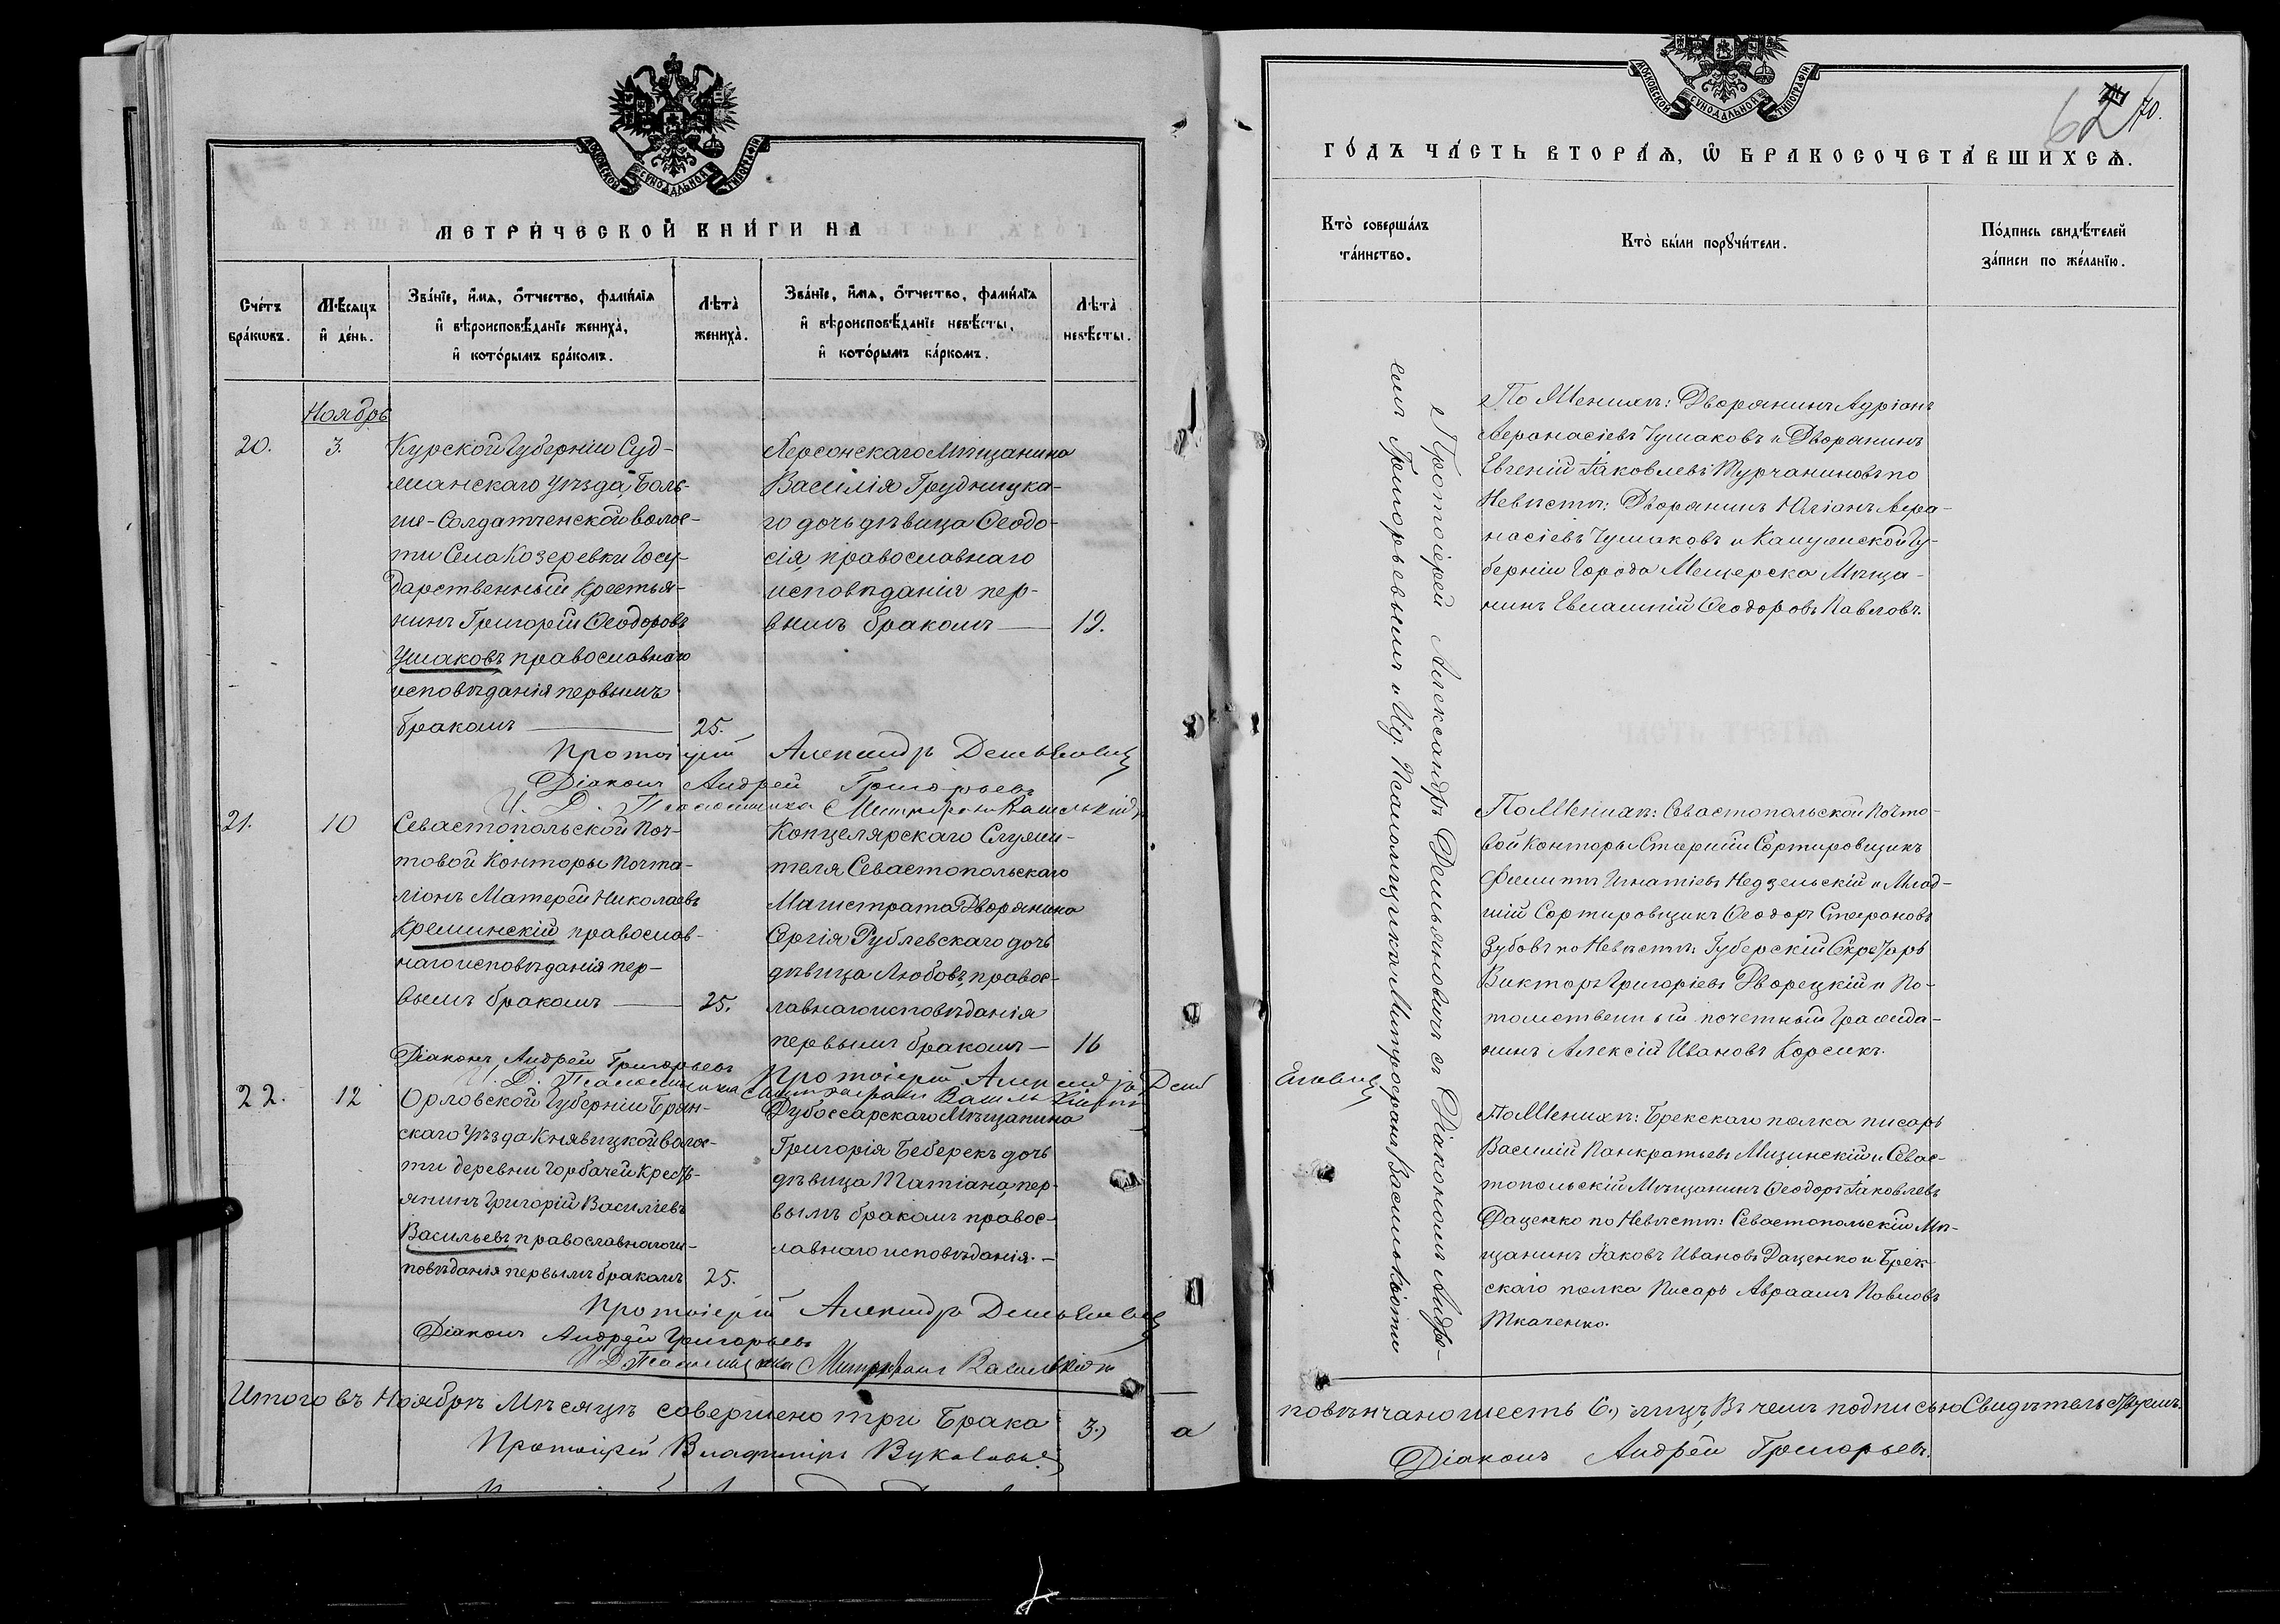 МОСКОВСКОЙ СѴНОДАЛЬНОЙ ТИПОГРАФІИ
МЕТРИ́ЧЕСКОЙ КНИ́ГИ НА
Счётъ бра́кωвъ.
Мѣ́сяцъ и҆ де́нь.
Зва́нїе, и҆́мѧ, ѻ҆́тчество, фамі́лїѧ
и҆ вѣроисповѣ́данїе жениха̀,
и҆ кото́рымъ бра́комъ.
Лѣта̀ жениха̀.
Зва́нїе, и҆́мѧ, ѻ҆́тчество, фамі́лїѧ
и҆ вѣроисповѣ́данїе невѣ́сты,
и҆ кото́рымъ ба́ркомъ.
Лѣта̀ невѣ́сты.
Ноябрь
20.
3.
Курской Губерніи Суд-
жанскаго Уѣзда, Боль-
ше-Солдатченской волос-
ти Села Козеревки Госу-
дарственный крестья-
нинъ Григорій Ѳеодоровъ
Ушаковъ православнаго
исповѣданія первымъ
бракомъ
25.
Херсонскаго Мѣщанина
Василія Грудницка-
го дочь дѣвица Ѳеодо-
сія, православнаго
исповѣданія пер-
вымъ бракомъ
19.
Протоіерей Александръ Демьяновичъ
Діаконъ Андрей Григорьевъ
И. Д. Псаломщика Митрофанъ Василькіоти
21.
10
Севастопольской Поч-
товой Конторы Почта-
ліонъ Матѳей Николаевъ
Креминскій православ-
наго исповѣданія пер-
вымъ бракомъ
25.
Концелярскаго Служи-
теля Севастопольскаго
Магистрата Дворянина
Сергія Рублевскаго дочь
дѣвица Любовь, правос-
лавнаго исповѣданія
первымъ бракомъ
16
Діаконъ Андрей Григорьевъ
Протоіерей Александръ Демьяновичъ
И. Д. Псаломщика Митрофанъ Василькіоти
22.
12
Орловской Губерніи Брян-
скаго Уѣзда Княвицкой волос-
ти деревни Горбачей Кресть-
янинъ Григорій Васильевъ
Васильевъ православнаго ис-
повѣданія первымъ бракомъ
25.
Дубоссарскаго Мѣщанина
Григорія Беберекъ дочь
дѣвица Татіана, пер-
вымъ бракомъ правос-
лавнаго исповѣданія.
Протоіерей Александръ Демьяновичъ
Діаконъ Андрей Григорьевъ
И. Д. Псаломщика Митрофанъ Василькіоти
Итого въ Ноябрѣ Мѣсяцѣ совершено три Брака
3.)
а
Протоіерей Владиміръ
МОСКОВСКОЙ СѴНОДАЛЬНОЙ ТИПОГРАФІИ
62
70.
ГО́ДЪ ЧА́СТЬ ВТОРА́Ѧ, Ѽ БРАКОСОЧЕТА́ВШИХСѦ.
Кто̀ соверша́лъ
та́инство.
Кто̀ бы́ли порꙋчи́тели.
По́дпись свидѣ́телей
за́писи по жела́нїю.
Протоіерей Александръ Демьяновичъ съ Діакономъ Андре-
емъ Григорьевымъ и И.д. Псаломщика Митрофаномъ Василькіоти
По Женихѣ: Дворянинъ Адріанъ
Аѳонасіевъ Чумаковъ и Дворянинъ
Евгеній Іаковлевъ Турчаниновъ по
Невѣстѣ: Дворянинъ Юліанъ Аѳа-
насіевъ Чумаковъ и Калужской Гу-
берніи Города Мещерска Мѣща-
нинъ Евлампій Ѳеодоровъ Павловъ.
По Женихѣ: Севастопольской Почто-
вой Конторы Старшій Сортировщикъ
Филиппъ Игнатіевъ Недзельскій и Млад-
шій Сортировщикъ Ѳеодоръ Стефановъ
Зубовъ по Невѣстѣ: Губерскій Секретарь
Викторъ Григоріевъ Дворецкій и По-
томственный почетный Гражда-
нинъ Алексій Ивановъ Корсикъ.
По Женихѣ: Брекскаго полка писарь
Василій Панкратьевъ Мизинскій и Севас-
топольскій Мѣщанинъ Ѳеодоръ Іаковлевъ
Даценко по Невѣстѣ: Севастопольскій Мѣ-
щанинъ Іаковъ Ивановъ Даценко и Брек-
скаго полка Писарь Авраамъ Павловъ
Ткаченко.
повѣнчано шесть 6.) лицъ, Въ чемъ подписью Свидѣтельствуемъ.
Діаконъ Андрей Григорьевъ.